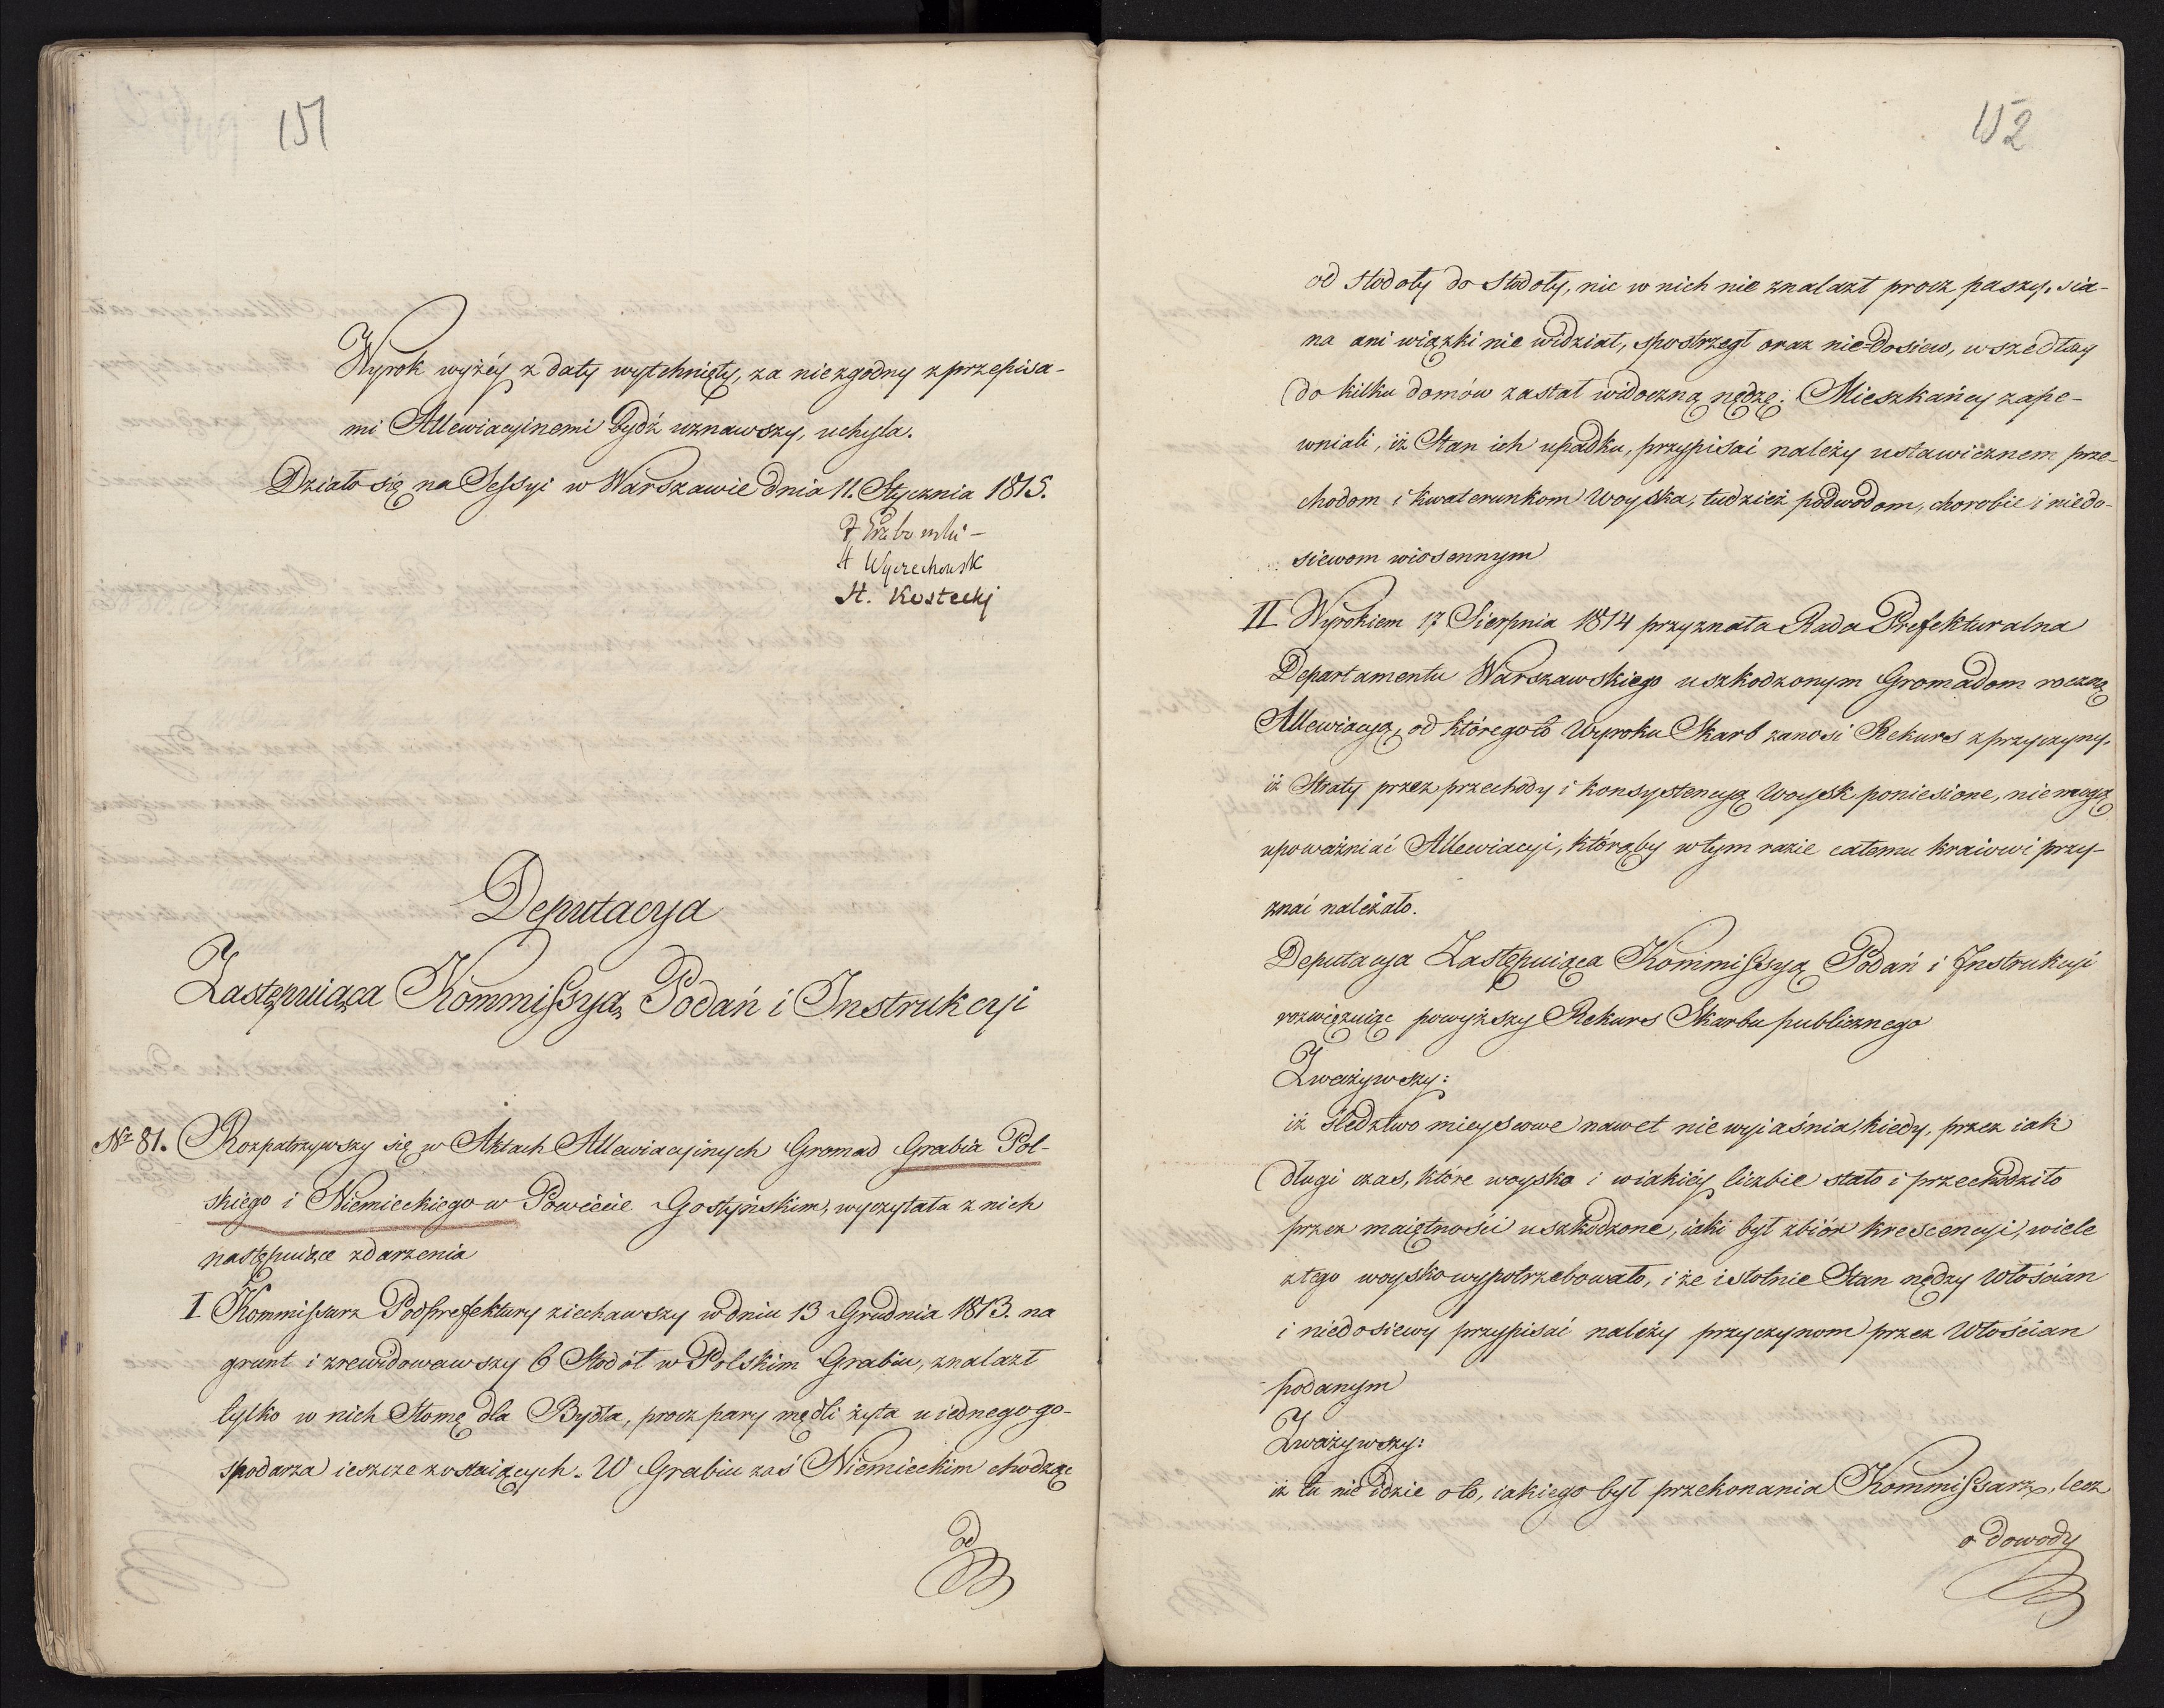 151
Wyrok wyżéy z daty wytchnięty, za niezgodny z przepisa-
mi Allewiacyinemi bydź uznawszy, uchyla.
Działo się na Sessyi w Warszawie dnia 11. Stycznia 1815.
H Wyczechowsk
St. Kostecki
Deputacya
Zastępuiąca Kommissyą Podań i Instrukcyi
Nr 81. Rozpatrzywszy się w Aktach Allewiacyinych Gromad Grabia Pol-
skiego i Niemieckiego w Powiecie Gostyńskim, wyczytała z nich
następuiące zdarzenia
I Kommissarz Podprefektury ziechawszy w dniu 13 Grudnia 1813. na
grunt i zrewidowawszy 6 Stodół w Polskim Grabiu, znalazł
tylko w nich Słomę dla Bydła, procz pary mędli żyta u iednego go-
spodarza ieszcze zostaiących. W Grabiu zaś Niemieckim chodząc
od
152
od stodoły do Stodoły, nic w nich nie znalazł procz paszy, sia-
na ani wiązki nie widział, spostrzegł oraz nie=dosiew, wszedłszy
do kilku domów zastał widoczną nędzę; Mieszkańcy zape-
wniali, iż Stan ich upadku, przypisać należy ustawicznem prze-
chodom i kwaterunkom Woyska, tudzież podwodom, chorobie i niedo-
siewom wiosennym
II Wyrokiem 17 Sierpnia 1814 przyznała Rada Prefekturalna
Departamentu Warszawskiego uszkodzonym Gromadom roczną
Allewiacyą, od którego to Wyroku Skarb zanosi Rekurs z przyczyny,
iż Straty przez przechody i konsystencyą Woysk poniesione, nie mogą
upoważniać Allewiacyi, którąby w tym razie całemu kraiowi przy-
znać należało.
Deputacya Zastępuiąca Kommissyą Podań i Instrukcyi
rozwięzuiąc powyższy Rekurs Skarbu publicznego
Zważywszy:
iż śledztwo mieyscowe nawet nie wyiaśnia, kiedy, przez iak
długi czas, które woysko i w iakiéy liczbie stało i przechodziło
przez maiętności uszkodzone, iaki był zbiór krescencyi, wiele
z tego woysko wypotrzebowało, i że istotnie Stan nędzy Włościan
i niedosiewy przypisać należy przyczynom przez Włościan
podanym
Zważywszy:
iż tu nie idzie o to, iakiego był przekonania Kommissarz, lecz
o dowody